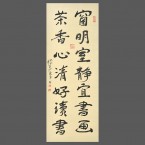 窗明室静宜書画
茶香心清好讀書